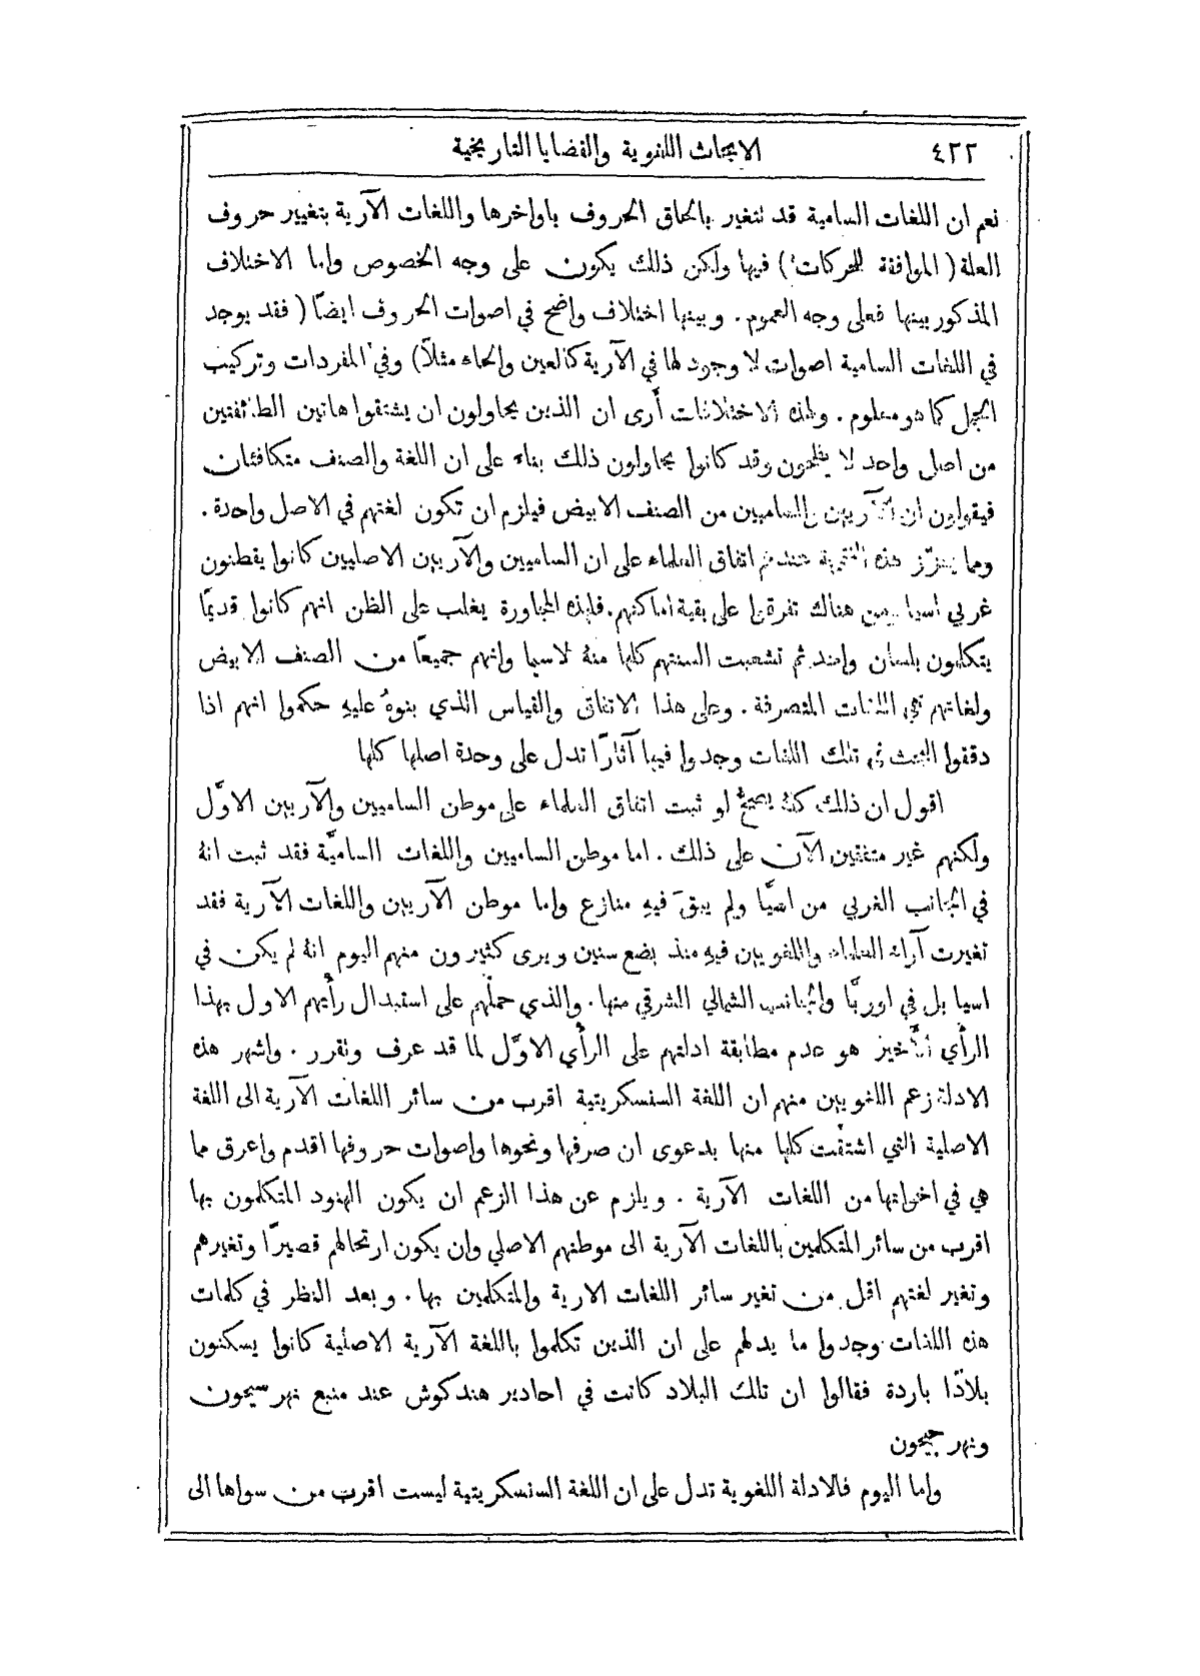 ٤٢٢ الابحاث اللغوية والقضايا التاريخية
نعم ان اللغات السامية قد تتغير بالحاق الحروف باواخرها واللغات الآرية بتغيير حروف
العلة ( الموافقة للحركات ) فيها ولكن ذلك يكون على وجه الخصوص واما الاختلاف
المذكور بينها فعلى وجه العموم . وبينها اختلاف واضح في اصوات الحروف ايضًا ( فقد يوجد
في اللغات السامية اصوات لا وجود لها في الآرية كالعين والحاء مثلاً ) وفي المفردات وتركيب
الجمل كما هو معلوم . ولهذه الاختلافات أرى ان الذين يحاولون ان يشتقوا هاتين الطائفتين
من اصل واحد لا يفلحون وقد كانوا يحاولون ذلك بناء على ان اللغة والصنف متكافئان
فيقولون ان الآريين والساميين من الصنف الابيض فيلزم ان تكون لغتهم في الاصل واحدة .
ومما يعزّز هذه عندهم اتفاق العلماء على ان الساميين والآريين الاصليين كانوا يقطنون
غربي اسيا ومن هناك تفرقوا على بقية اماكنهم . فلهذه المجاورة يغلب على الظن انهم كانوا قديمًا
يتكلمون بلسان واحد ثم تشعبت السنتهم كلها منهُ لاسيما وانهم جميعًا من الصنف الابيض
ولغاتهم من اللغات المتصرفة . وعلى هذا الاتفاق والقياس الذي بنوهُ عليهِ حكموا انهم اذا
دققوا البحث في تلك اللغات وجدوا فيها آثارًا تدل على وحدة اصلها كلها
اقول ان ذلك كلهُ يصحُّ لو ثبت اتفاق العلماء على موطن الساميين والآريين الاوَّل
ولكنهم غير متفقين الآن على ذلك . اما موطن الساميين واللغات الساميَّة فقد ثبت انهُ
في الجانب الغربي من اسيَّا ولم يبقَ فيهِ منازع واما موطن الآريين واللغات الآرية فقد
تغيرت آراء العلماء واللغويين فيهِ منذ بضع سنين ويرى كثيرون منهم اليوم انهُ لم يكن في
اسيا بل في اوربَّا والجانب الشمالي الشرقي منها . والذي حملهم على استبدال رأيهم الاول بهذا
الرأي الأخير هو عدم مطابقة ادلتهم على الرأي الاوَّل لما قد عرف وتقرر . واشهر هذه
الادلة زعم اللغويين منهم ان اللغة السنسكريتية اقرب من سائر اللغات الآرية الى اللغة
الاصلية التي اشتقت كلها منها بدعوى ان صرفها ونحوها واصوات حروفها اقدم واعرق مما
هي في اخواتها من اللغات الآرية . ويلزم عن هذا الزعم ان يكون الهنود المتكلمون بها
اقرب من سائر المتكلمين باللغات الآرية الى موطنهم الاصلي وان يكون ارتحالهم قصيرًا وتغيرهم
وتغير لغتهم اقل من تغير سائر اللغات الارية والمتكلمين بها . وبعد النظر في كلمات
هذه اللغات وجدوا ما يدلهم على ان الذين تكلموا باللغة الآرية الاصلية كانوا يسكنون
بلادًا باردة فقالوا ان تلك البلاد كانت في احادير هندكوش عند منبع نهر سيحون
ونهر جيحون
واما اليوم فالادلة اللغوية تدل على ان اللغة السنسكريتية ليست اقرب من سواها الى